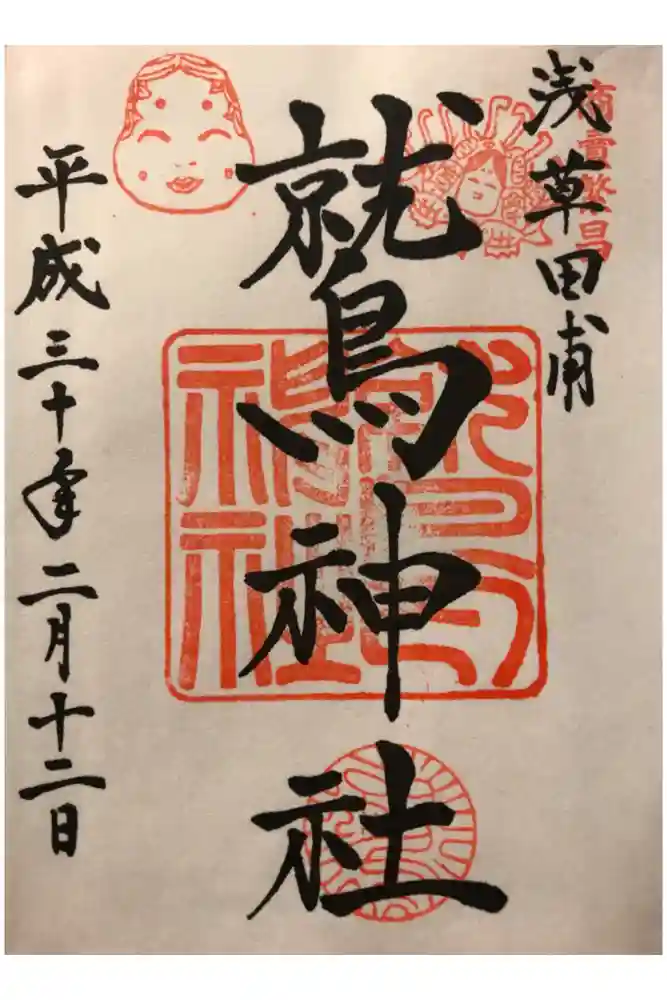 浅草田甫
商賣繁昌
鷲神社
鷲神社
平成三十年二月十二日